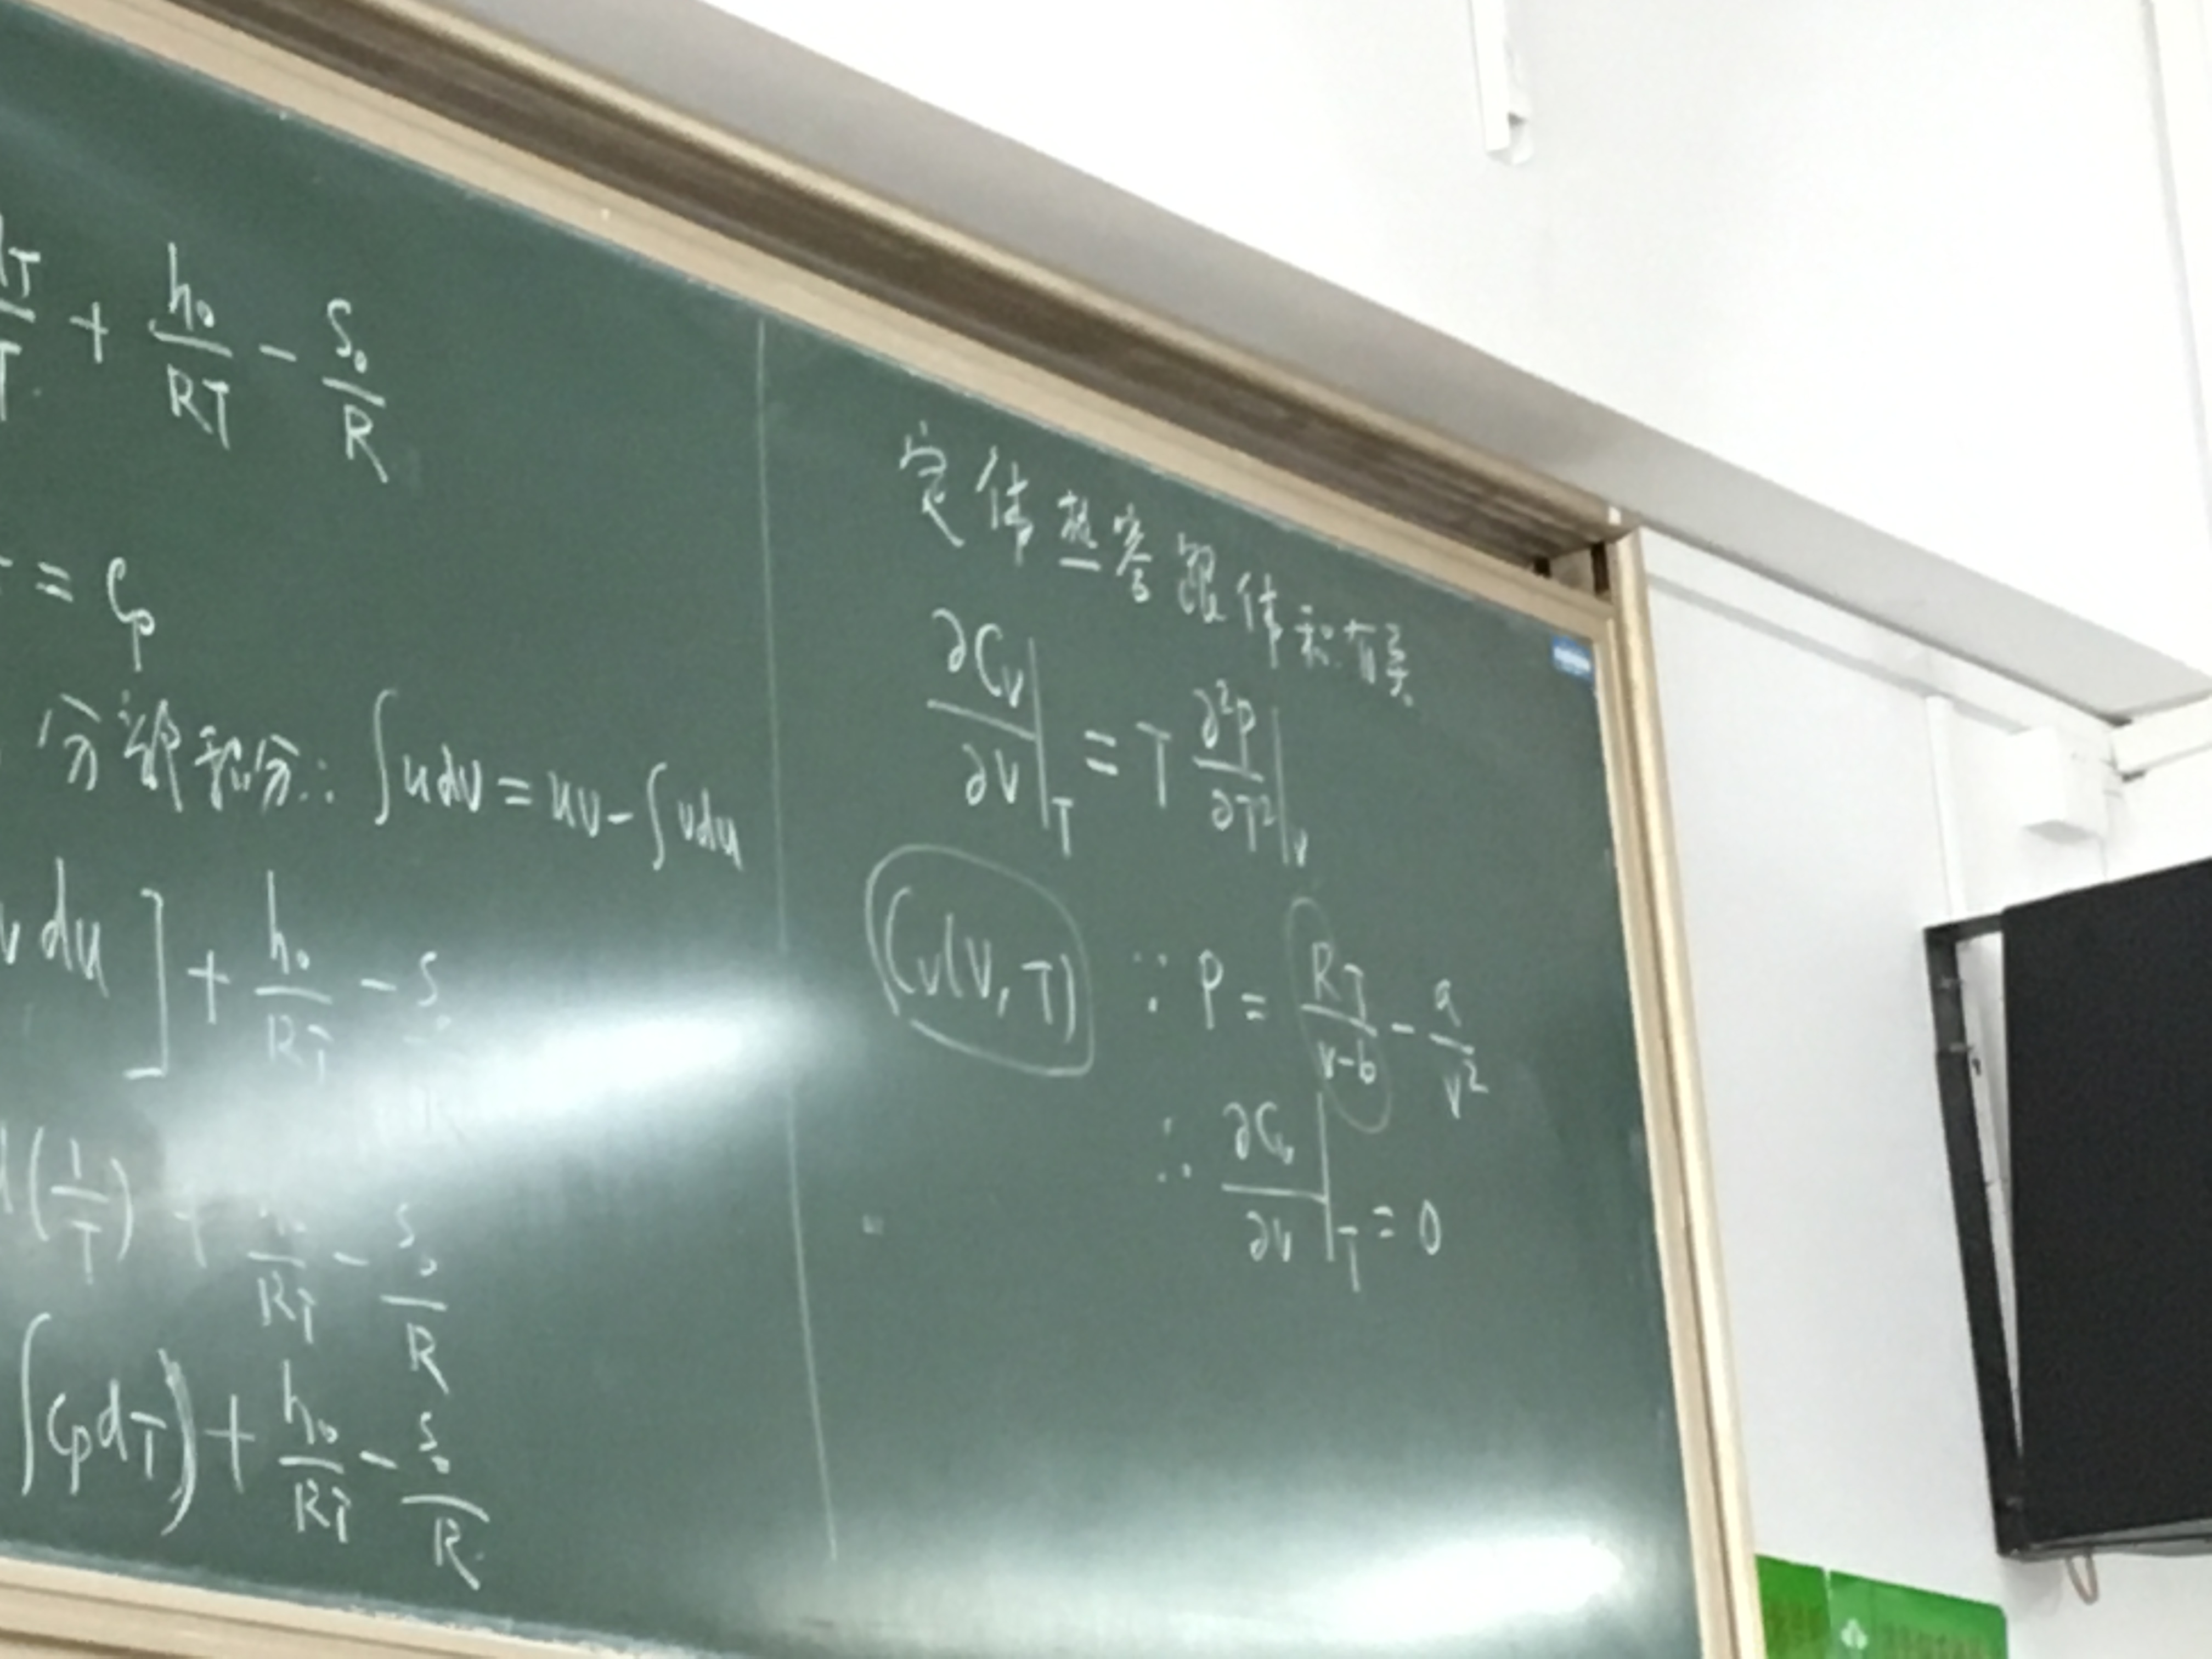 dT/T + h₀/RT - S₀/R
= Cp
分部积分: ∫udv = uv - ∫vdu
v du ] + h₀/RT - S
d(1/T) + /RT - S₀/R
∫Cp dT) + h₀/RT - S₀/R
定体热容跟体积有关
∂Cv/∂V|T = T ∂²P/∂T²|v
Cv(V, T) ∵ P = RT/v-b - a/v²
∴ ∂Cv/∂v|T = 0